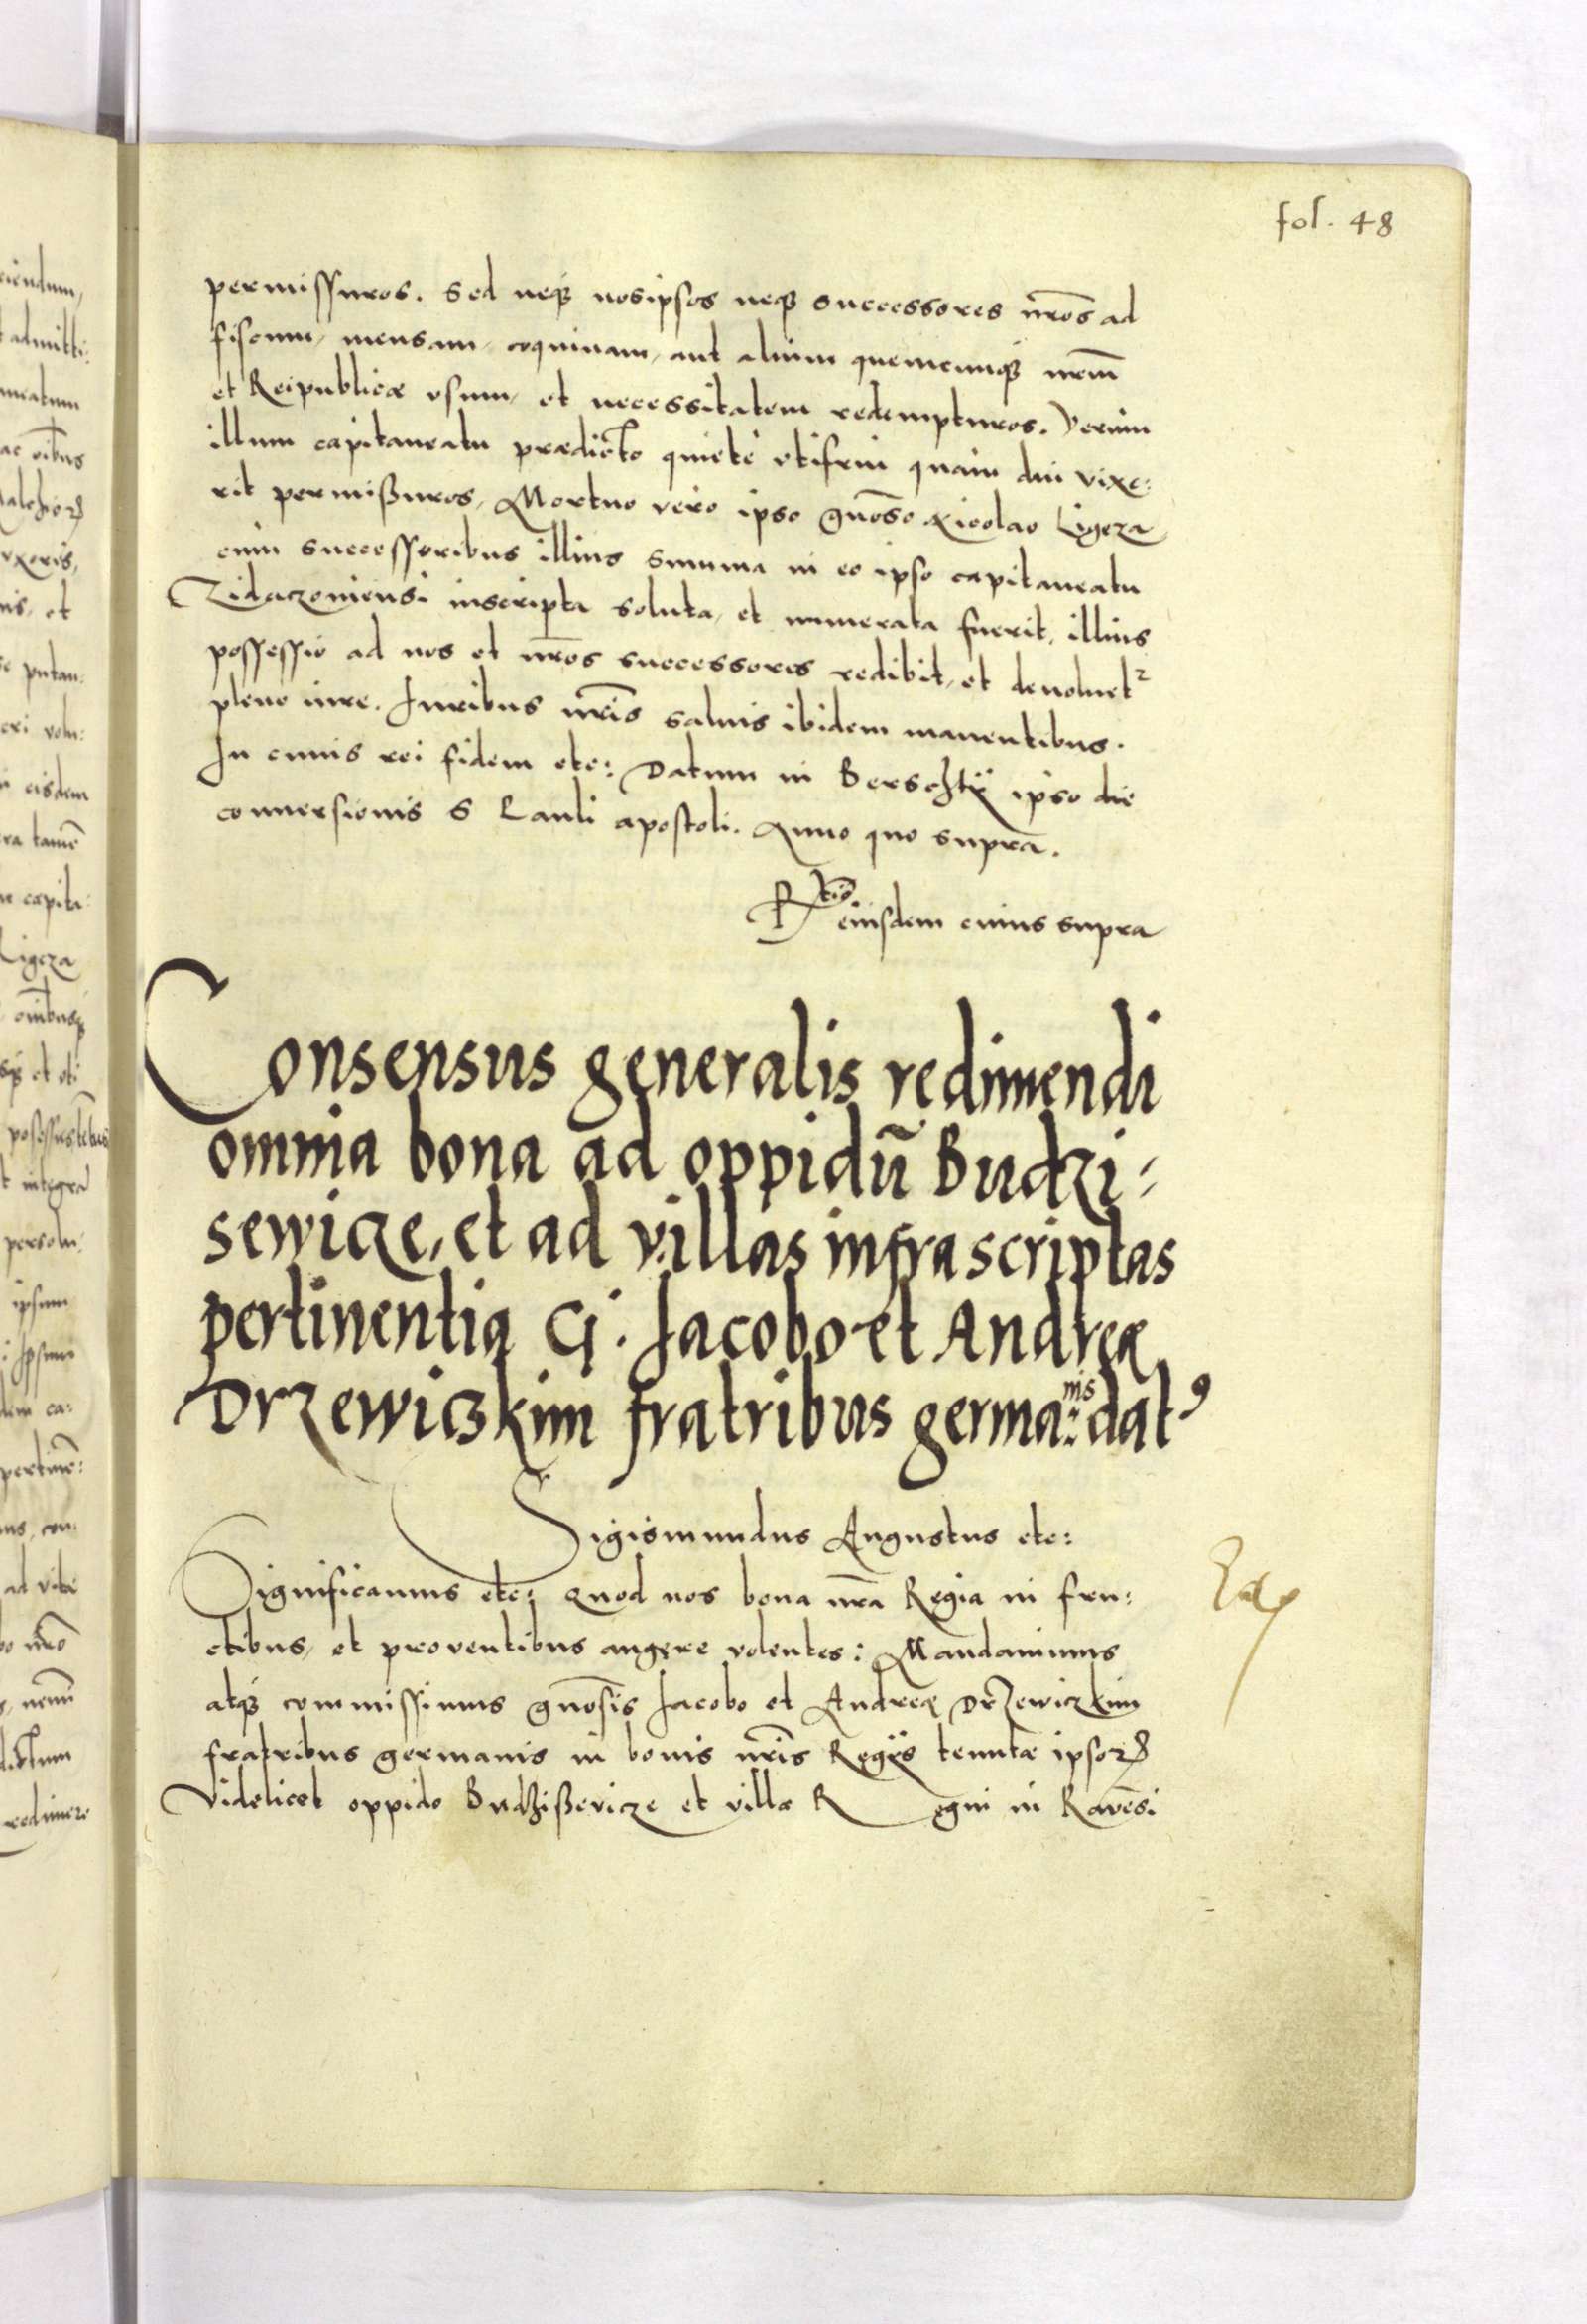 fol. 48
permissuros. Sed neq₃ nosipsos neq₃ successores nr̃os ad
fiscum, mensam, coquinam, aut alium quemcunq₃ nr̃um
et Reipublicæ vsum, et necessitatem redempturos. Verum
illum capitaneatu prædicto quiete vtifrui quam diu vixe:
rit permißuros, Mortuo vero ipso gñoso Nicolao Ligeza
cum successoribus illius summa in eo ipso capitaneatu
Zidaczoviensi inscripta soluta, et numerata fuerit, illius
possessio ad nos et nr̃os successores redibit, et devoluet²
pleno iure. Iuribus nr̃is saluis ibidem manentibus.
In cuius rei fidem etc: Datum in Berschtÿ ipso die
conuersionis S Pauli apostoli. Anno quo supra.
R̃tio eiusdem cuius supra
Consensus generalis redimendi
omnia bona ad oppidũ Budzi-
sewicze, et ad villas infrascriptas
pertinentia G: Iacobo et Andreæ
Drzewiczkim fratribus germa:nis dat⁹
Sigismundus Augustus etc:
Significamus etc: Quod nos bona nr̃a Regia in fru:
ctibus, et proventibus augere volentes: Mandauimus
atq₃ commissimus gñosis Iacobo et Andreæ Drzewiczkim
fratribus germanis in bonis nr̃is Regÿs tenutæ ipsoꝝ
Videlicet oppido Budzißevicze et villæ Regni in Raveñsi